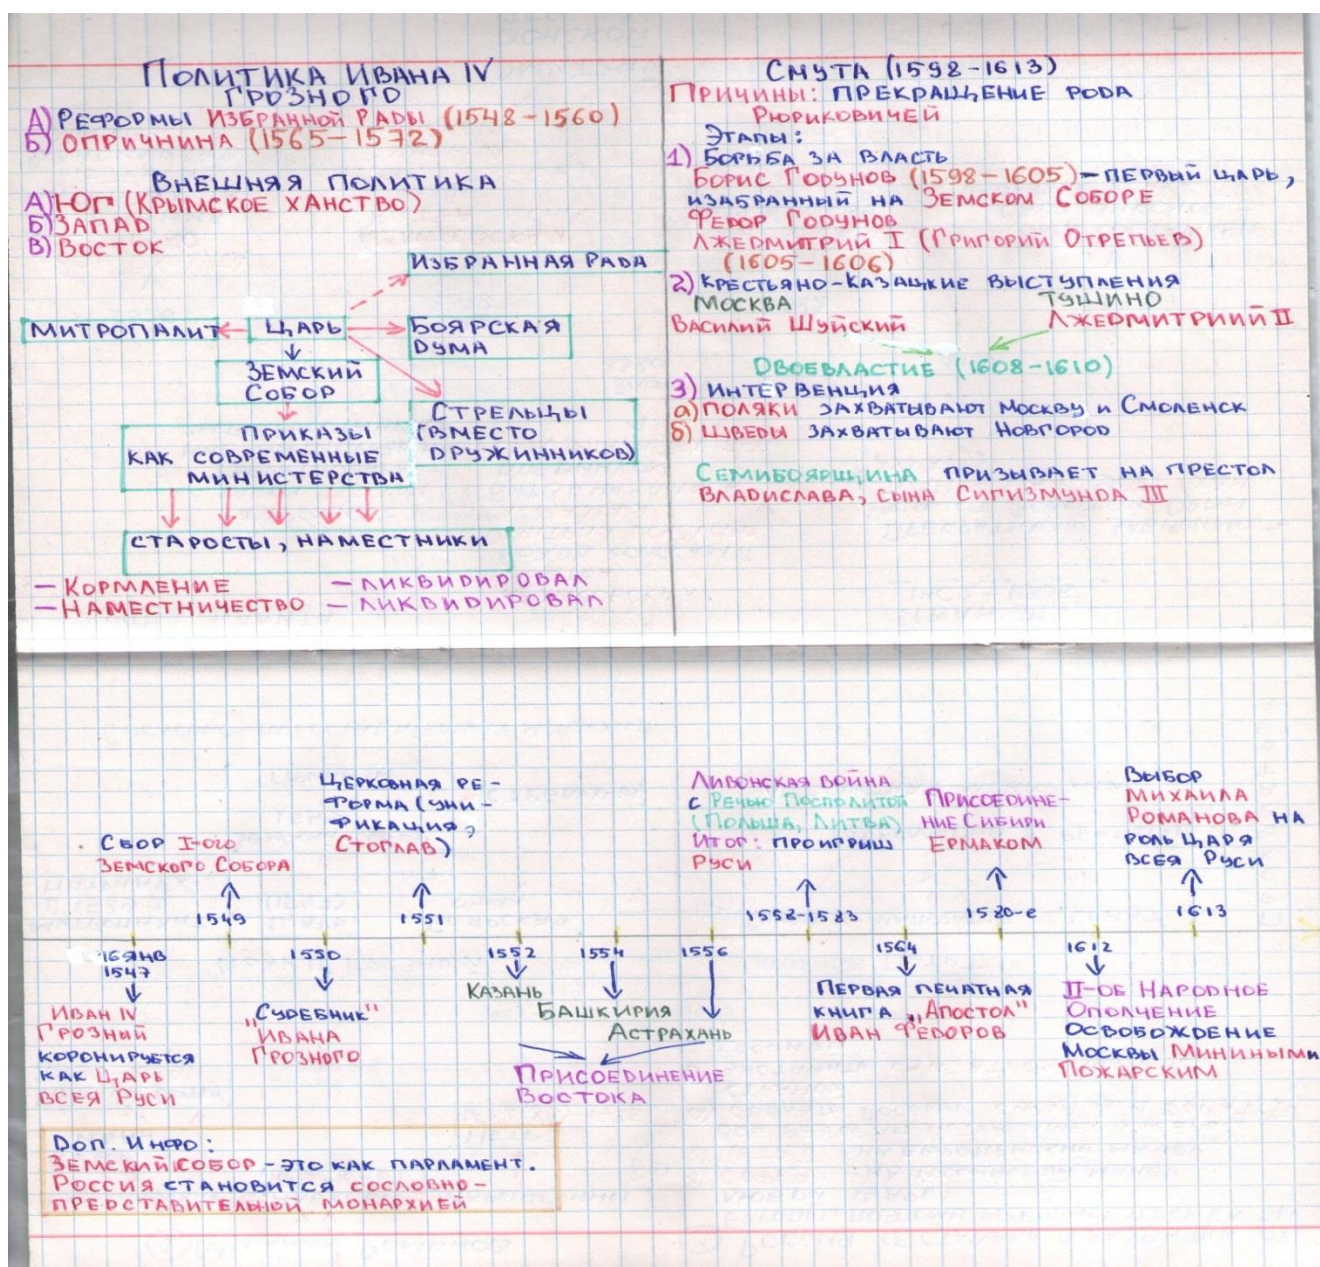 ПОЛИТИКА ИВАНА IV
ГРОЗНОГО
А) РЕФОРМЫ ИЗБРАННОЙ РАДЫ (1548-1560)
Б) ОПРИЧНИНА (1565-1572)
ВНЕШНЯЯ ПОЛИТИКА
А) ЮГ (КРЫМСКОЕ ХАНСТВО)
Б) ЗАПАД
В) ВОСТОК
ИЗБРАННАЯ РАДА
МИТРОПАЛИТ
ЦАРЬ
БОЯРСКАЯ
ДУМА
ЗЕМСКИЙ
СОБОР
СТРЕЛЬЦЫ
(ВМЕСТО
ДРУЖИННИКОВ)
ПРИКАЗЫ
КАК СОВРЕМЕННЫЕ
МИНИСТЕРСТВА
СТАРОСТЫ, НАМЕСТНИКИ
- КОРМЛЕНИЕ - ЛИКВИДИРОВАЛ
- НАМЕСТНИЧЕСТВО - ЛИКВИДИРОВАЛ
СМУТА (1598-1613)
ПРИЧИНЫ: ПРЕКРАЩЕНИЕ РОДА
РЮРИКОВИЧЕЙ
ЭТАПЫ:
1) БОРЬБА ЗА ВЛАСТЬ
БОРИС ГОДУНОВ (1598-1605) - ПЕРВЫЙ ЦАРЬ,
ИЗАБРАННЫЙ НА ЗЕМСКОМ СОБОРЕ
ФЕДОР ГОДУНОВ
ЛЖЕДМИТРИЙ I (ГРИГОРИЙ ОТРЕПЬЕВ)
(1605-1606)
2) КРЕСТЬЯНО-КАЗАЦКИЕ ВЫСТУПЛЕНИЯ
МОСКВА ТУШИНО
ВАСИЛИЙ ШУЙСКИЙ ЛЖЕДМИТРИИЙ II
ДВОЕВЛАСТИЕ (1608-1610)
3) ИНТЕРВЕНЦИЯ
а) ПОЛЯКИ ЗАХВАТЫВАЮТ МОСКВУ И СМОЛЕНСК
б) ШВЕДЫ ЗАХВАТЫВАЮТ НОВГОРОД
СЕМИБОЯРЩИНА ПРИЗЫВАЕТ НА ПРЕСТОЛ
ВЛАДИСЛАВА, СЫНА СИГИЗМУНДА III
СБОР I-ОГО
ЗЕМСКОГО СОБОРА
1549
ЦЕРКОВНАЯ РЕ-
ФОРМА (УНИ-
ФИКАЦИЯ,
СТОГЛАВ)
1551
ЛИВОНСКАЯ ВОЙНА
С РЕЧЬЮ ПОСПОЛИТОЙ
(ПОЛЬША, ЛИТВА)
ИТОГ: ПРОИГРИШ
РУСИ
1558-1583
ПРИСОЕДИНЕ-
НИЕ СИБИРИ
ЕРМАКОМ
1580-е
ВЫБОР
МИХАИЛА
РОМАНОВА НА
РОЛЬ ЦАРЯ
ВСЕЯ РУСИ
1613
16 ЯНВ
1547
ИВАН IV
ГРОЗНЫЙ
КОРОНИРУЕТСЯ
КАК ЦАРЬ
ВСЕЯ РУСИ
1550
„СУДЕБНИК"
ИВАНА
ГРОЗНОГО
1552
КАЗАНЬ
1554
БАШКИРИЯ
1556
АСТРАХАНЬ
ПРИСОЕДИНЕНИЕ
ВОСТОКА
1564
ПЕРВАЯ ПЕЧАТНАЯ
КНИГА „АПОСТОЛ"
ИВАН ФЕДОРОВ
1612
II-ОЕ НАРОДНОЕ
ОПОЛЧЕНИЕ
ОСВОБОЖДЕНИЕ
МОСКВЫ МИНИНЫМ И
ПОЖАРСКИМ
ДОП. ИНФО:
ЗЕМСКИЙ СОБОР - ЭТО КАК ПАРЛАМЕНТ.
РОССИЯ СТАНОВИТСЯ СОСЛОВНО-
ПРЕДСТАВИТЕЛЬНОЙ МОНАРХИЕЙ